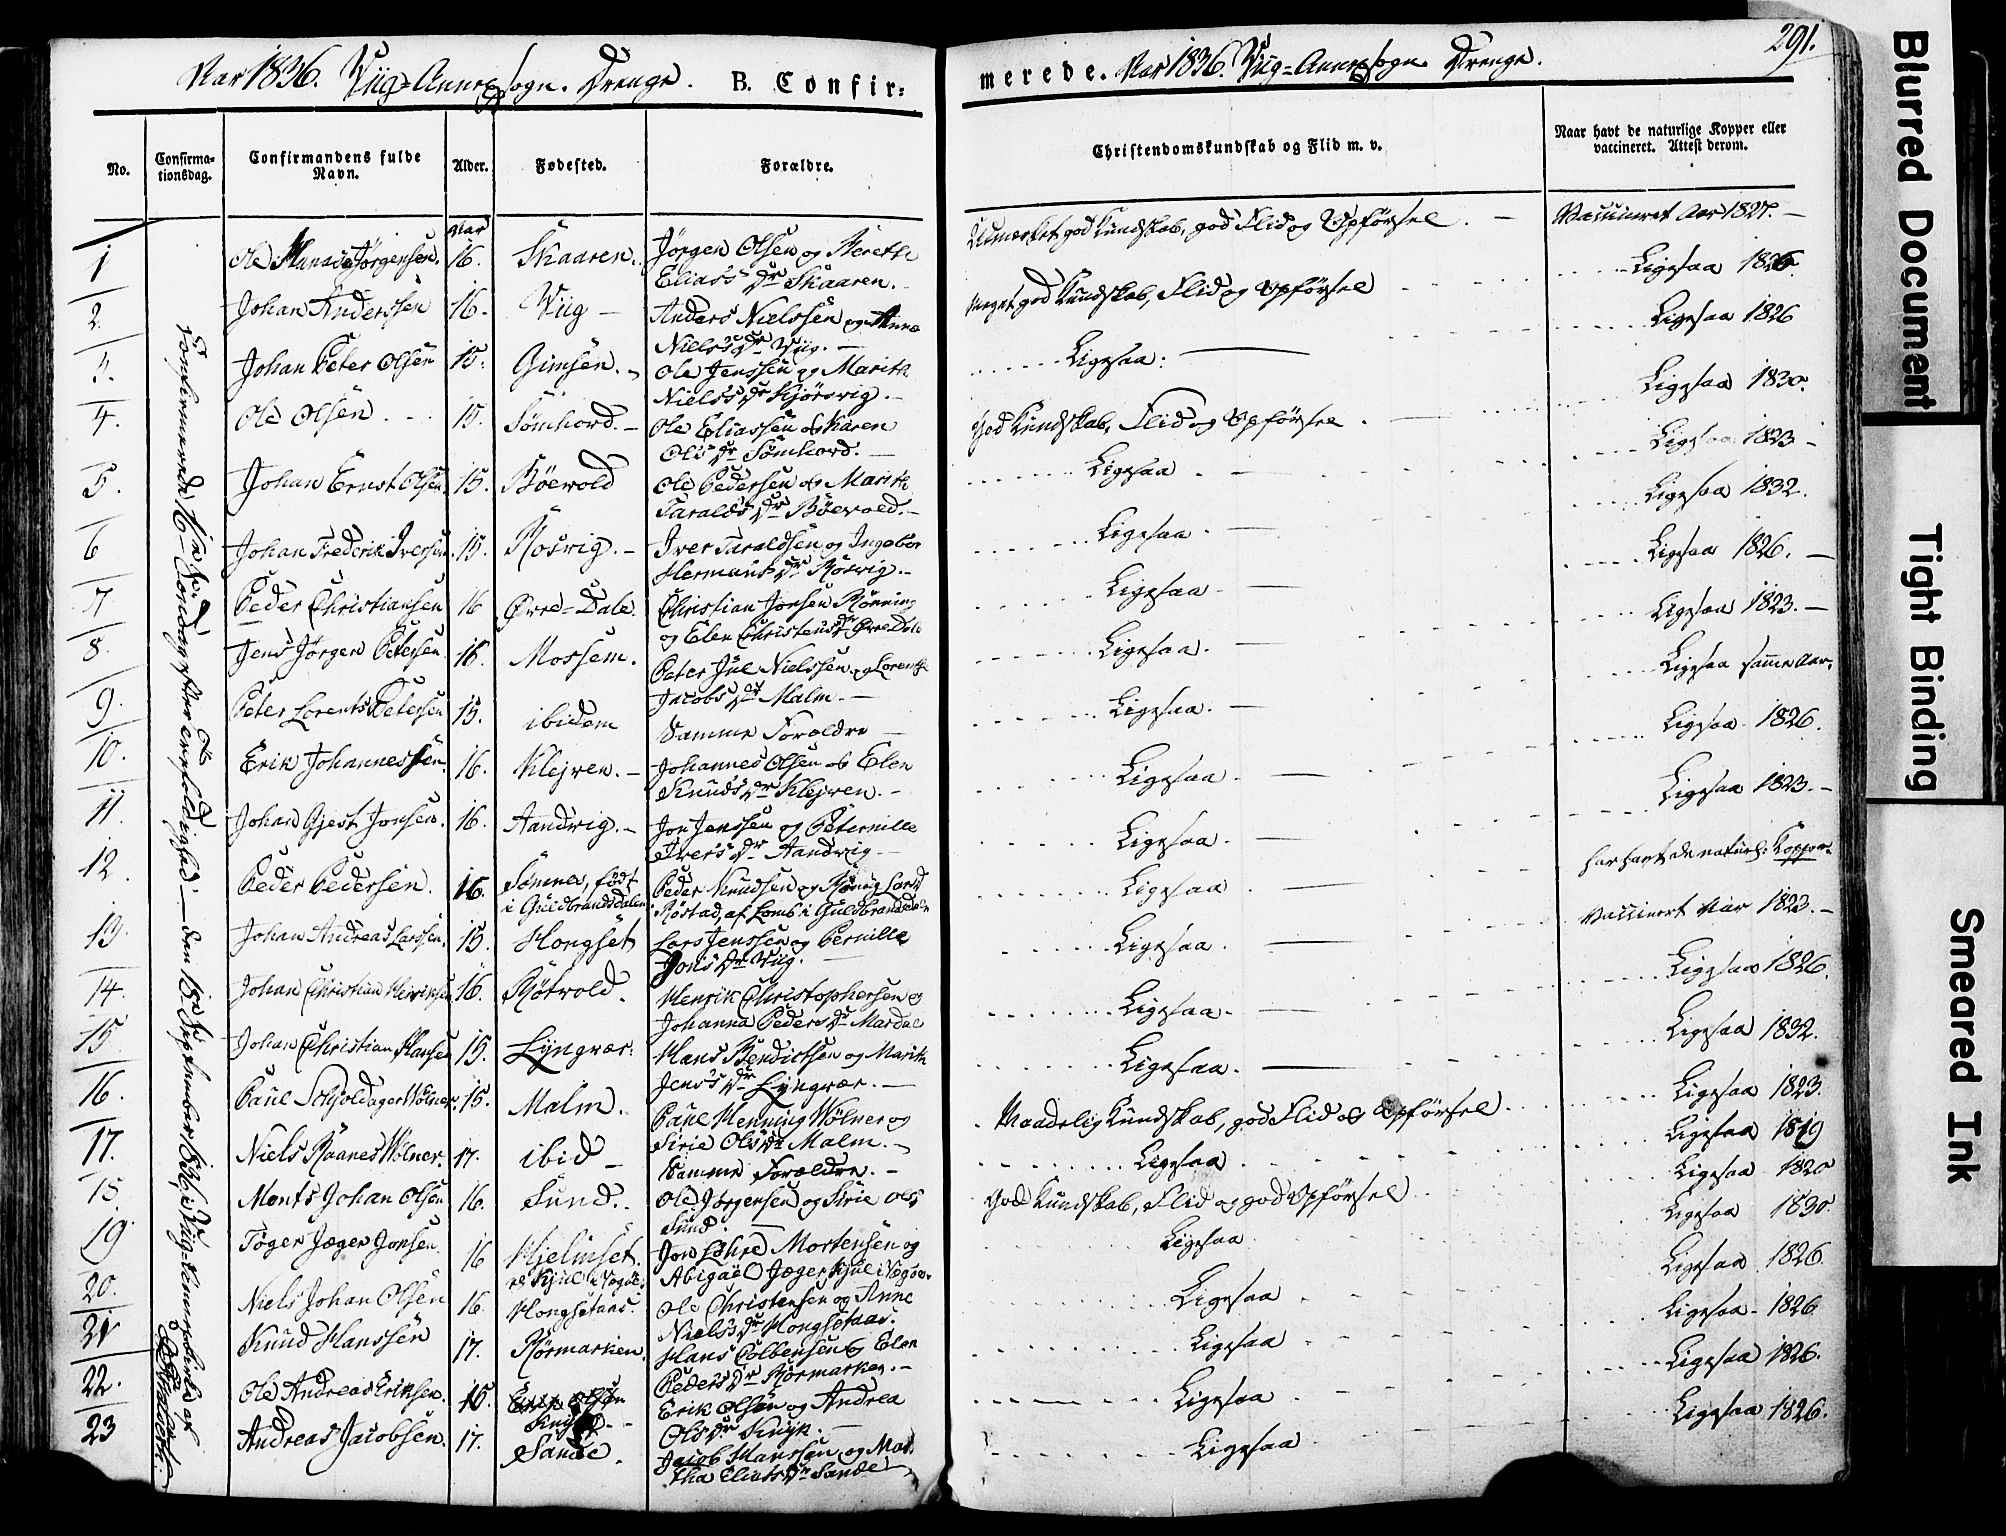 Aar 1836. Viig-Annexsogn. Drenge. B. Confir-
merede. Aar 1836. Viig-Annexsogn. Drenge. 291.
No. Confirma-tionsdag. Confirmandens fulde Navn. Alder. Fødested. Forældre.
Christendomskundskab og Flid m. v.
Naar havt de naturlige Kopper eller vaccineret. Attest derom.
Aar
1 Ole Jørgensen. 16. Skaaren. Jørgen Olsen og Berethe
Elias's Dr Skaaren.
Udmærket god Kundskab, god Flid og Opførsel. Vaccineret Aar 1827.
2. Johan Anderssen 16. Viig Anders Nielssen og Anne
Niels's Dr Viig.
Meget god Kundskab, Flid og Opførsel Ligesaa 1826.
3. Johan Peter Olsen 15. Gimsen. Ole Jenssen og Marith
Niels's Dr Kjørsvig.
Ligesaa. Ligesaa 1826
4. Ole Olsen 15. Ole Eliassen og Karen
Ols Dr
God Kundskab, Flid og Opførsel. Ligesaa 1830.
5. Johan Ernst Olsen 15. Bøevold Ole Pedersen og Marith
Taralds Dr Bøevold.
Ligesaa. Ligesaa 1823
6 Johan Frederik Iversen 15. Rosvig. Iver Taraldsen og Ingebor
Hermans Dr Rosvig.
Ligesaa. Ligesaa 1832.
7 Peder Christiansen 16 Øvre-Dale. Christian Jonsen Rønning
og Elen Christens Dr Øvre Dale
Ligesaa Ligesaa 1826.
8. Jens Jørgen Petersen 16. Mossem. Peter Jul Nielssen og Lorentse
Jacobs Dr Malm.
Ligesaa. Ligesaa 1823.
9. Peter Lorents Petersen 15. ibidem Samme Forældre
Ligesaa. Ligesaa samme Aar.
10. Erik Johannessen 16. Klejven. Johannes Olsen og Elen
Knuds Dr Klejven.
Ligesaa. Ligesaa 1826.
11. Johan Gjest Jonsen. 16. Aandvig. Jon Jenssen og Peternille
Ivers Dr Aandvig
Ligesaa. Ligesaa 1823.
12. Peder Pedersen. 16. født
i Guldbrandsdalen Peder Knudsen og
Røstad, af Loms i Guldbrandsdalen
Ligesaa har havt de naturl: Kopper.
13. Johan Andreas Larssen. 15. Hongset Lars Jenssen og Pernille
Jons Dr Viig.
Ligesaa. Vaccineret Aar 1823.
14. Johan Christian Henriksen 16. Røtvold. Henrik Christophersen og
Johanna Peders Dr Mardal
Ligesaa. Ligesaa 1826.
15. Johan Christian Hansen 15. Lyngvær. Hans Bendictsen og Marith
Jens's Dr Lyngvær.
Ligesaa. Ligesaa 1832.
16. Paul Wølner. 15. Malm. Paul Henning Wølner og
Sirie Ols Dr Malm.
Maadelig Kundskab, god Flid og Opførsel. Ligesaa 1823.
17. Niels Wølner. 17. ibid Samme Forældre.
Ligesaa Ligesaa 1819
Monts Johan Olsen 16. Sund. Ole Jørgensen og Sirie Ols
Sund.
God Kundskab, Flid og god Opførsel Ligesaa 1820
19 Tøger Jæger Jonsen 16 Hjelmset. Jon Mortensen og
Abigael Jæger
Ligesaa Ligesaa 1830.
20. Niels Johan Olsen 16. Hongsetaas. Ole Christensen og Anne
Niels's Dr Hongsetaas.
Ligesaa Ligesaa 1826.
21 Knud Hanssen 17. Rørmarken. Hans Colbensen og Elen
Peders Dr Rørmarken.
Ligesaa Ligesaa 1826.
22. Ole Andreas Eriksen. 15 Erik Olsen og Andrea
Ols Dr Knijk.
Ligesaa Ligesaa 1826.
23 Andreas Jacobsen. 17. Sande. Jacob Hanssen og Mar
tha Elias Dr Sande
Ligesaa Ligesaa 1826.
Blurred Document
Tight Binding
Smeared Ink